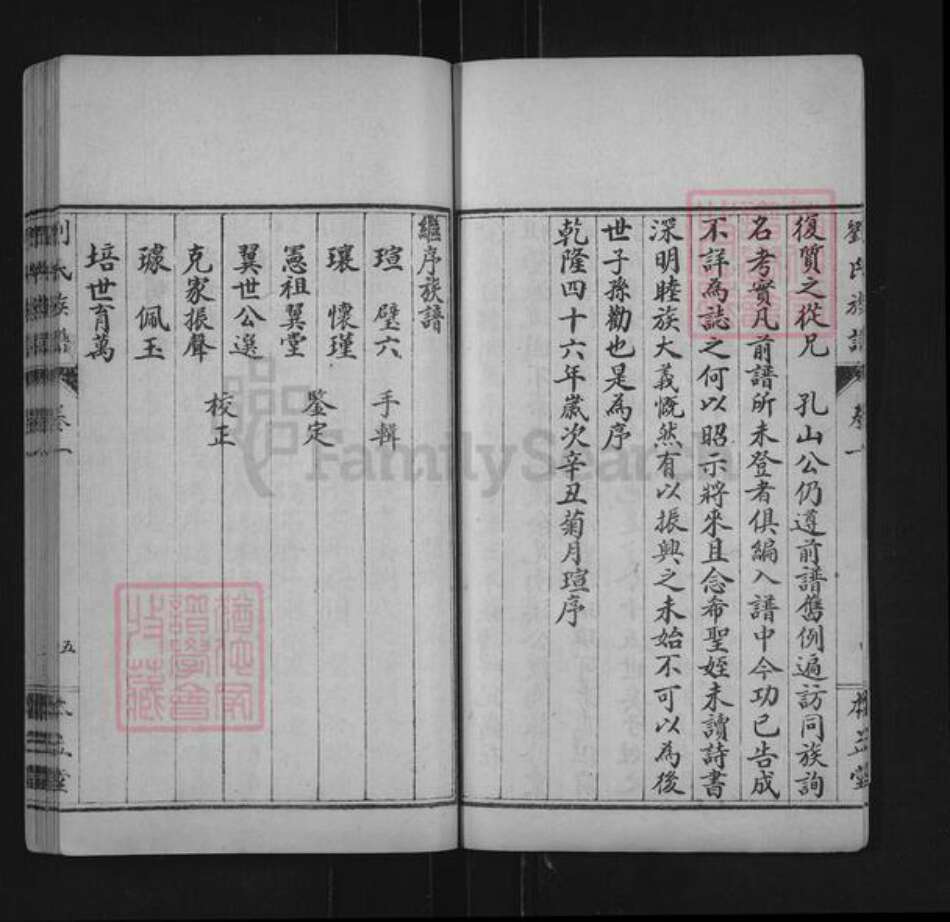 劉氏族譜 卷一
復質之從兄 孔山公仍遵前譜舊例遍訪同族詢
名考實凡前譜所未登者俱編入譜中今功已告成
不詳為誌之何以昭示將來且念希聖姪未讀詩書
深明睦族大義慨然有以振興之未始不可以為後
世子孫勸也是為序
乾隆四十六年歲次辛丑菊月瑄序
繼序族譜
瑄 璧六 手輯
瓌 懷瑾
憲祖翼堂 鑒定
翼世公選
克家振聲 校正
璩 佩玉
培世育萬
劉氏族譜 卷一 五
FamilySearch